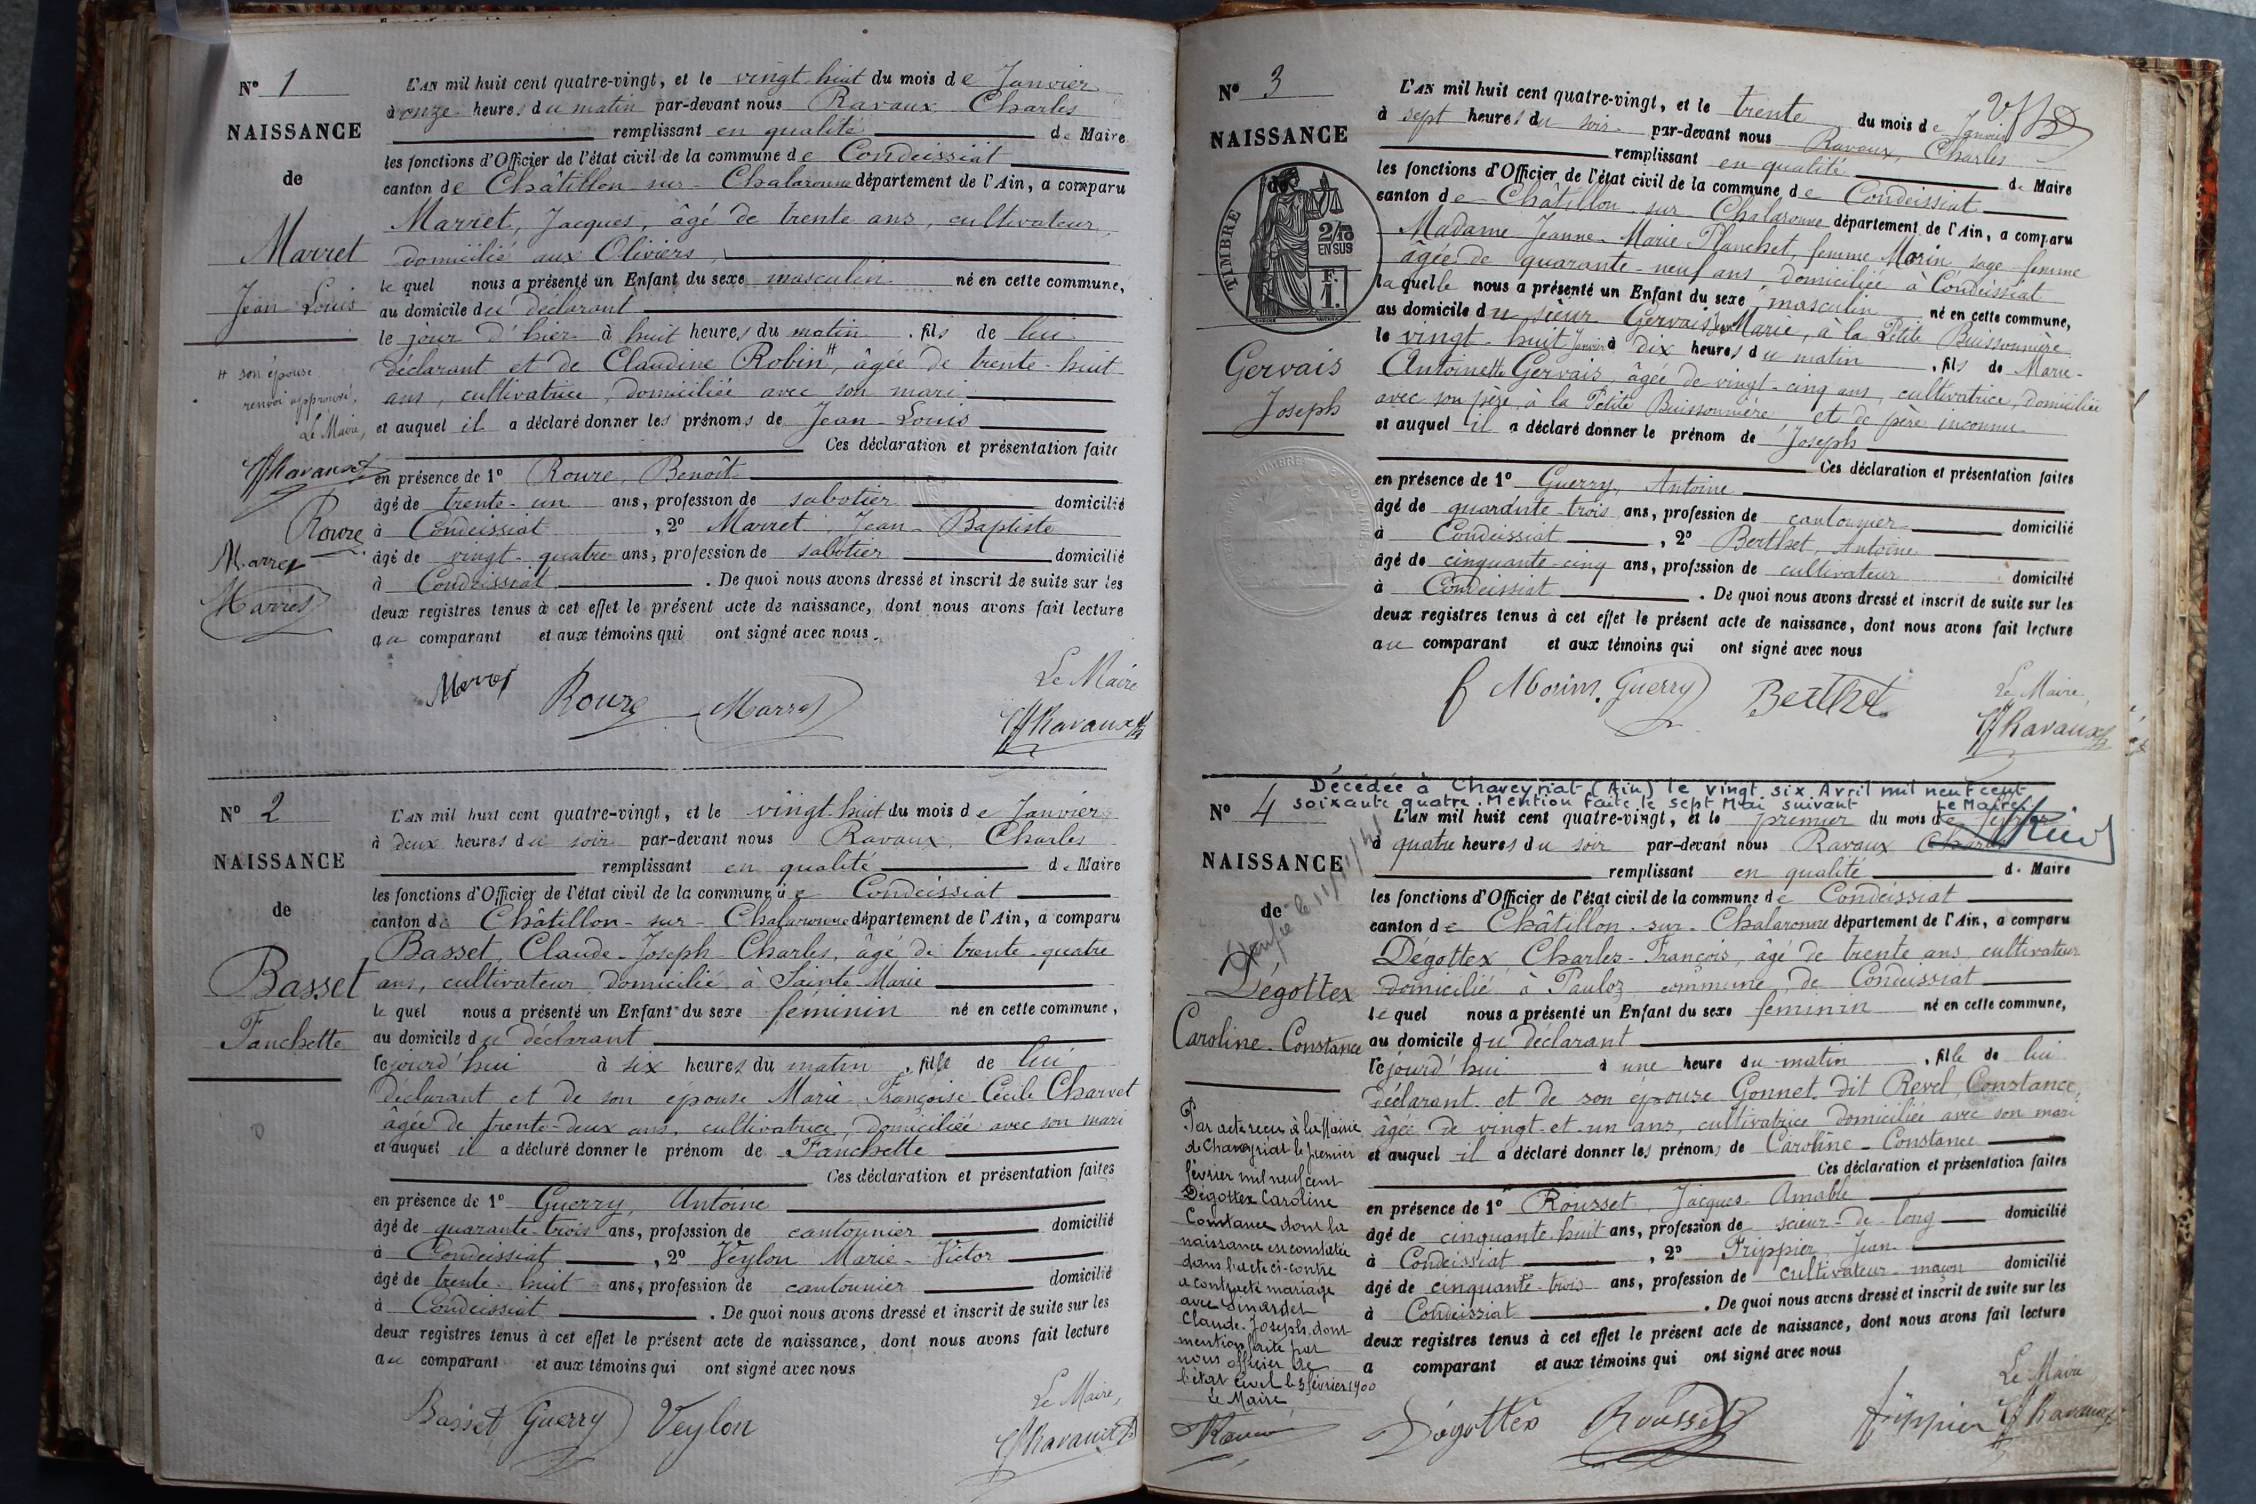 N° 1
NAISSANCE
de
Marret
Jean-Louis
# son épouse
renvoi approuvé,
Le Maire,
Ravaux
Roure
Marret
Marret
L'AN mil huit cent quatre-vingt, et le vingt-huit du mois de Janvier
à onze heures du matin par-devant nous Ravaux Charles
remplissant en qualité de Maire
les fonctions d'Officier de l'état civil de la commune de Condeissiat
canton de Châtillon-sur-Chalaronne département de l'Ain, a comparu
Marret, Jacques, âgé de trente ans, cultivateur,
domicilié aux Oliviers,
lequel nous a présenté un Enfant du sexe masculin né en cette commune,
au domicile du déclarant
le jour d'hier à huit heures du matin, fils de lui
déclarant et de Claudine Robin #, âgée de trente-huit
ans, cultivatrice, domiciliée avec son mari
et auquel il a déclaré donner les prénoms de Jean-Louis
Ces déclaration et présentation faites
en présence de 1° Roure, Benoît
âgé de trente-un ans, profession de sabotier domicilié
à Condeissiat, 2° Marret, Jean-Baptiste
âgé de vingt-quatre ans, profession de sabotier domicilié
à Condeissiat. De quoi nous avons dressé et inscrit de suite sur les
deux registres tenus à cet effet le présent acte de naissance, dont nous avons fait lecture
au comparant et aux témoins qui ont signé avec nous.
Le Maire
Marret Roure Marret Ravaux
N° 2
NAISSANCE
de
Basset
Fanchette
L'AN mil huit cent quatre-vingt, et le vingt-huit du mois de Janvier
à deux heures du soir par-devant nous Ravaux, Charles
remplissant en qualité de Maire
les fonctions d'Officier de l'état civil de la commune de Condeissiat
canton de Châtillon-sur-Chalaronne département de l'Ain, a comparu
Basset, Claude-Joseph-Charles, âgé de trente-quatre
ans, cultivateur domicilié à Sainte-Marie
lequel nous a présenté un Enfant du sexe féminin né en cette commune,
au domicile du déclarant
cejourd'hui à six heures du matin, fille de lui
déclarant et de son épouse Marie-Françoise-Cécile Charvet
âgée de trente-deux ans, cultivatrice, domiciliée avec son mari
et auquel il a déclaré donner le prénom de Fanchette
Ces déclaration et présentation faites
en présence de 1° Guerry, Antoine
âgé de quarante-trois ans, profession de cantonnier domicilié
à Condeissiat, 2° Veylon Marie-Victor
âgé de trente-huit ans, profession de cantonnier domicilié
à Condeissiat. De quoi nous avons dressé et inscrit de suite sur les
deux registres tenus à cet effet le présent acte de naissance, dont nous avons fait lecture
au comparant et aux témoins qui ont signé avec nous
Le Maire,
Basset Guerry Veylon Ravaux
N° 3
NAISSANCE
de
TIMBRE
2/10
EN SUS
F.
1.
Gervais
Joseph
L'AN mil huit cent quatre-vingt, et le trente du mois de Janvier
à sept heures du soir par-devant nous Ravaux, Charles
remplissant en qualité de Maire
les fonctions d'Officier de l'état civil de la commune de Condeissiat
canton de Châtillon-sur-Chalaronne département de l'Ain, a comparu
Madame Jeanne-Marie Planchet, femme Morin, sage-femme
âgée de quarante-neuf ans domiciliée à Condeissiat
laquelle nous a présenté un Enfant du sexe masculin né en cette commune,
au domicile du sieur Gervais Marie, à la Petite Buissonnière
le vingt-huit Janvier à dix heures du matin, fils de Marie-
Antoinette Gervais, âgée de vingt-cinq ans, cultivatrice, domiciliée
avec son père, à la Petite Buissonnière et de père inconnu
et auquel il a déclaré donner le prénom de Joseph
Ces déclaration et présentation faites
en présence de 1° Guerry, Antoine
âgé de quarante-trois ans, profession de cantonnier domicilié
à Condeissiat, 2° Berthet, Antoine
âgé de cinquante-cinq ans, profession de cultivateur domicilié
à Condeissiat. De quoi nous avons dressé et inscrit de suite sur les
deux registres tenus à cet effet le présent acte de naissance, dont nous avons fait lecture
au comparant et aux témoins qui ont signé avec nous
Le Maire
f Morin. Guerry Berthet Ravaux
Décédée à Chaveyriat (Ain) le vingt six Avril mil neuf cent
soixante quatre. Mention faite le sept Mai suivant
Le Maire
N° 4
NAISSANCE
de
Dégottex
Caroline-Constance
Par acte reçu à la Mairie
de Chaveyriat le premier
février mil neuf cent
Dégottex Caroline
Constance dont la
naissance est constatée
dans l'acte ci-contre
a contracté mariage
avec Dinardet
Claude-Joseph, dont
mention faite par
nous officier de
l'état civil le 3 février 1900
Le Maire,
L'AN mil huit cent quatre-vingt, et le premier du mois de février
à quatre heures du soir par-devant nous Ravaux Charles
remplissant en qualité de Maire
les fonctions d'Officier de l'état civil de la commune de Condeissiat
canton de Châtillon-sur-Chalaronne département de l'Ain, a comparu
Dégottex Charles-François, âgé de trente ans, cultivateur
domicilié à Pauloz commune de Condeissiat
lequel nous a présenté un Enfant du sexe féminin né en cette commune,
au domicile du déclarant
cejourd'hui à une heure du matin, fille de lui
déclarant et de son épouse Gonnet dit Revel, Constance,
âgée de vingt-et-un ans, cultivatrice domiciliée avec son mari
et auquel il a déclaré donner les prénoms de Caroline-Constance
Ces déclaration et présentation faites
en présence de 1° Rousset, Jacques-Amable
âgé de cinquante-huit ans, profession de scieur-de-long domicilié
à Condeissiat, 2° Frippier, Jean
âgé de cinquante-trois ans, profession de cultivateur-maçon domicilié
à Condeissiat. De quoi nous avons dressé et inscrit de suite sur les
deux registres tenus à cet effet le présent acte de naissance, dont nous avons fait lecture
a comparant et aux témoins qui ont signé avec nous
Le Maire
Dégottex Rousset frippier Ravaux